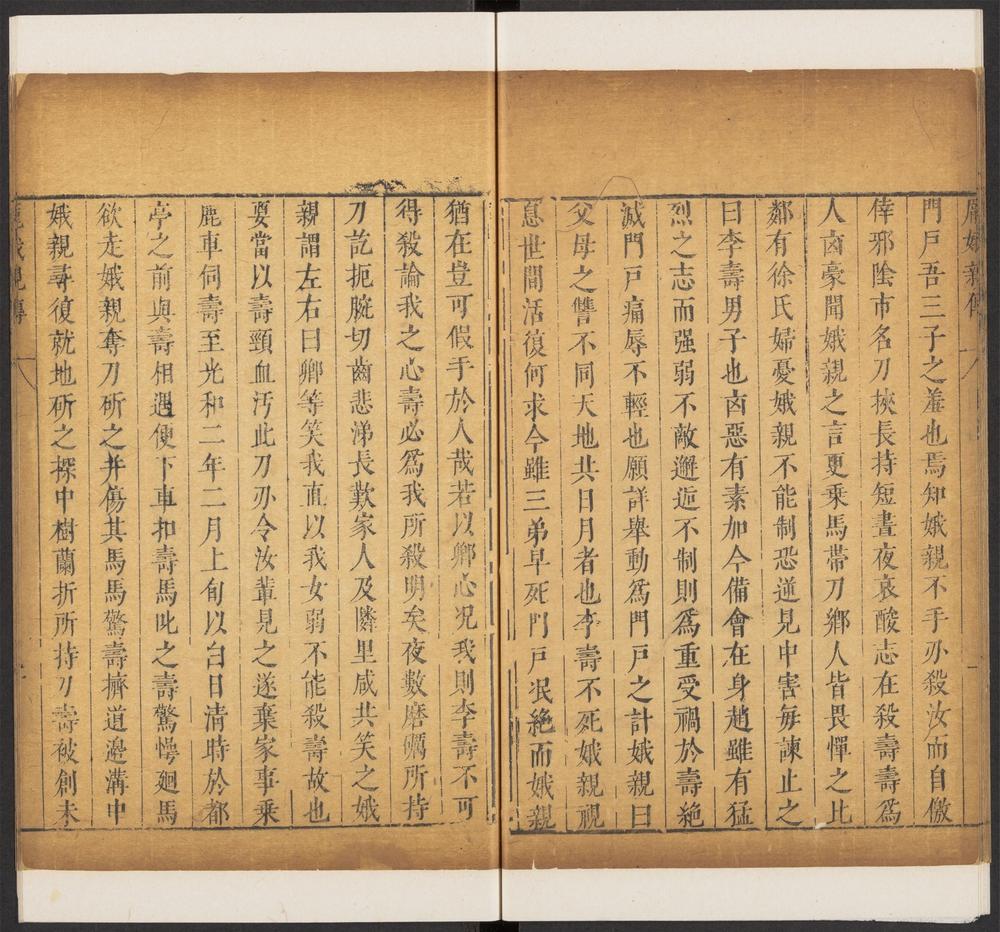 龐娥親傳
門戶吾三子之羞也焉知娥親不手刃殺汝而自儌
倖邪陰市名刀挾長持短晝夜哀酸志在殺壽壽爲
人凶豪聞娥親之言更乘馬帶刀鄉人皆畏憚之比
鄰有徐氏婦憂娥親不能制恐逆見中害每諫止之
曰李壽男子也凶惡有素加今備會在身趙雖有猛
烈之志而强弱不敵邂逅不制則爲重受禍於壽絶
滅門戶痛辱不輕也願詳舉動爲門戶之計娥親曰
父母之讐不同天地共日月者也李壽不死娥親視
息世間活復何求今雖三弟早死門戶泯絶而娥親
猶在豈可假手於人哉若以卿心况我則李壽不可
得殺論我之心壽必爲我所殺明矣夜數磨礪所持
刀訖扼腕切齒悲涕長歎家人及隣里咸共笑之娥
親謂左右曰卿等笑我直以我女弱不能殺壽故也
要當以壽頸血汚此刀刃令汝輩見之遂棄家事乘
鹿車伺壽至光和二年二月上旬以白日清時於都
亭之前與壽相遇便下車扣壽馬叱之壽驚愕廻馬
欲走娥親奪刀斫之并傷其馬馬驚壽擠道邊溝中
娥親尋復就地斫之探中樹蘭折所持刀壽被創未
龐娥親傳